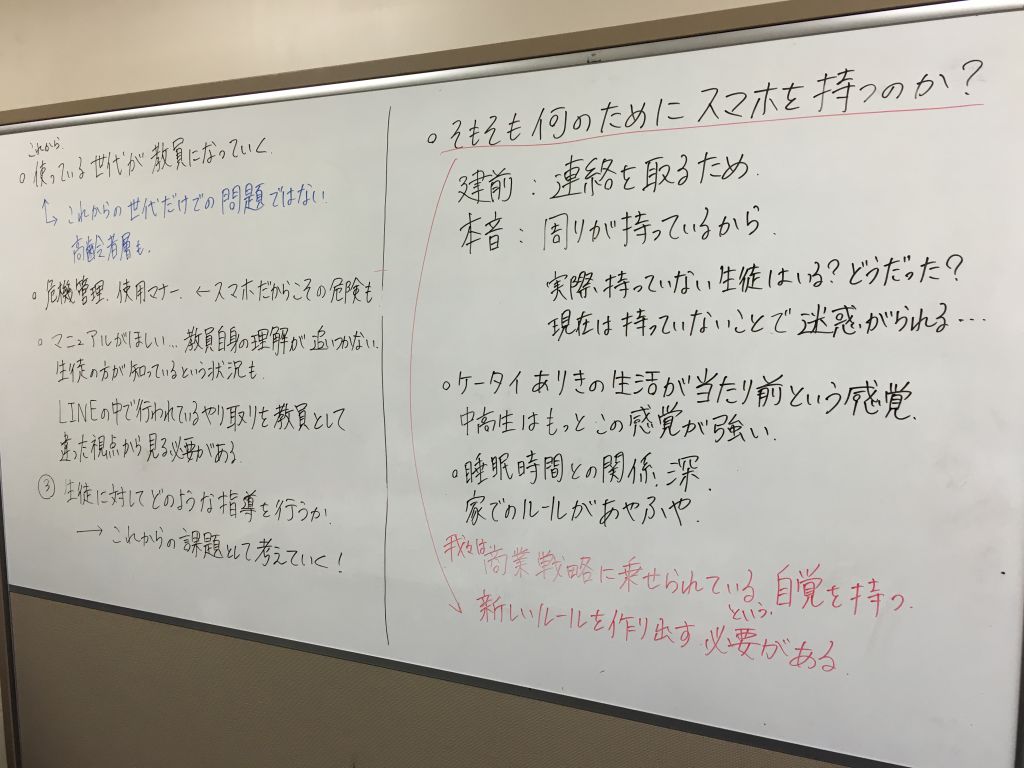 これから
○ 使っている世代が教員になっていく
↳ これからの世代だけでの問題ではない
高齢者層も.
○ 危機管理. 使用マナー. ←スマホだからこその危険も
○ マニュアルがほしい… 教員自身の理解が追いつかない.
生徒の方が知っているという状況も.
LINEの中で行われているやり取りを教員として
違った視点から見る必要がある.
③ 生徒に対してどのような指導を行うか.
→ これからの課題として考えていく!
○ そもそも何のためにスマホを持つのか?
建前: 連絡を取るため.
本音: 周りが持っているから.
実際、持っていない生徒はいる? どうだった?
現在は持っていないことで迷惑がられる…
○ ケータイありきの生活が当たり前という感覚.
中高生はもっとこの感覚が強い.
○ 睡眠時間との関係、深.
家でのルールがあやふや.
我々は商業戦略に乗せられている、という自覚を持つ.
新しいルールを作り出す必要がある